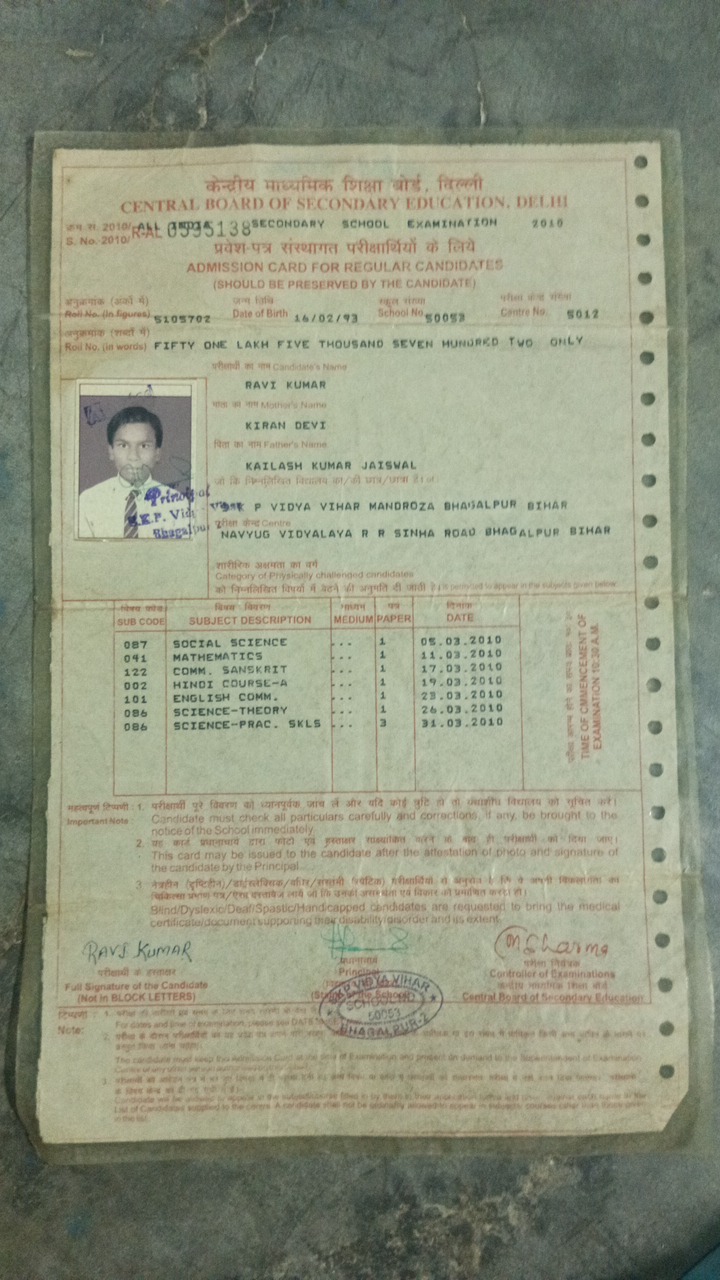 केन्द्रीय माध्यमिक शिक्षा बोर्ड, दिल्ली
CENTRAL BOARD OF SECONDARY EDUCATION, DELHI
क्रम सं. 2010/ ALL INDIA SECONDARY SCHOOL EXAMINATION 2010
S. No. 2010/ R-AL 0595138
प्रवेश-पत्र संस्थागत परीक्षार्थियों के लिये
ADMISSION CARD FOR REGULAR CANDIDATES
(SHOULD BE PRESERVED BY THE CANDIDATE)
अनुक्रमांक (अंकों में) जन्म तिथि स्कूल संख्या परीक्षा केन्द्र संख्या
Roll No. (In figures) 5105702 Date of Birth 16/02/93 School No. 50053 Centre No. 5012
अनुक्रमांक (शब्दों में)
Roll No. (in words) FIFTY ONE LAKH FIVE THOUSAND SEVEN HUNDRED TWO ONLY
परीक्षार्थी का नाम Candidate's Name
RAVI KUMAR
माता का नाम Mother's Name
KIRAN DEVI
पिता का नाम Father's Name
KAILASH KUMAR JAISWAL
जो कि निम्नलिखित विद्यालय का/की छात्र/छात्रा है।
P VIDYA VIHAR MANDROZA BHAGALPUR BIHAR
परीक्षा केन्द्र Centre
NAVYUG VIDYALAYA R R SINHA ROAD BHAGALPUR BIHAR
Principal
S.K.P. Vidya Vihar
Bhagalpur
शारीरिक अक्षमता का वर्ग
Category of Physically challenged candidates
को निम्नलिखित विषयों में बैठने की अनुमति दी जाती है। is permitted to appear in the subjects given below
विषय कोड विषय विवरण माध्यम पत्र दिनांक
SUB CODE SUBJECT DESCRIPTION MEDIUM PAPER DATE
087 SOCIAL SCIENCE ... 1 05.03.2010
041 MATHEMATICS ... 1 11.03.2010
122 COMM. SANSKRIT ... 1 17.03.2010
002 HINDI COURSE-A ... 1 19.03.2010
101 ENGLISH COMM. ... 1 23.03.2010
086 SCIENCE-THEORY ... 1 26.03.2010
086 SCIENCE-PRAC. SKLS ... 3 31.03.2010
TIME OF CMMENCEMENT OF
EXAMINATION 10:30 A.M.
महत्वपूर्ण टिप्पणी : 1. परीक्षार्थी पूरे विवरण को ध्यानपूर्वक जांच लें और यदि कोई त्रुटि हो तो यथाशीघ्र विद्यालय को सूचित करें।
Important Note : Candidate must check all particulars carefully and corrections, if any, be brought to the
notice of the School immediately.
2. यह कार्ड प्रधानाचार्य द्वारा फोटो एवं हस्ताक्षर साक्ष्यांकित करने के बाद ही परीक्षार्थी को दिया जाए।
This card may be issued to the candidate after the attestation of photo and signature of
the candidate by the Principal.
3.
Blind/Dyslexic/Deaf/Spastic/Handicapped candidates are requested to bring the medical
certificate/document supporting their disability/disorder and its extent.
RAVI KUMAR
परीक्षार्थी के हस्ताक्षर प्रधानाचार्य परीक्षा नियंत्रक
Full Signature of the Candidate Principal Controller of Examinations
(Not in BLOCK LETTERS) Central Board of Secondary Education
S.K.P. VIDYA VIHAR
SCHOOL NO
50053
BHAGALPUR-2
टिप्पणी : 1.
Note:
2.
The candidate must keep this Admission Card at the time of Examination and present on demand to the Superintendent of Examination
3.